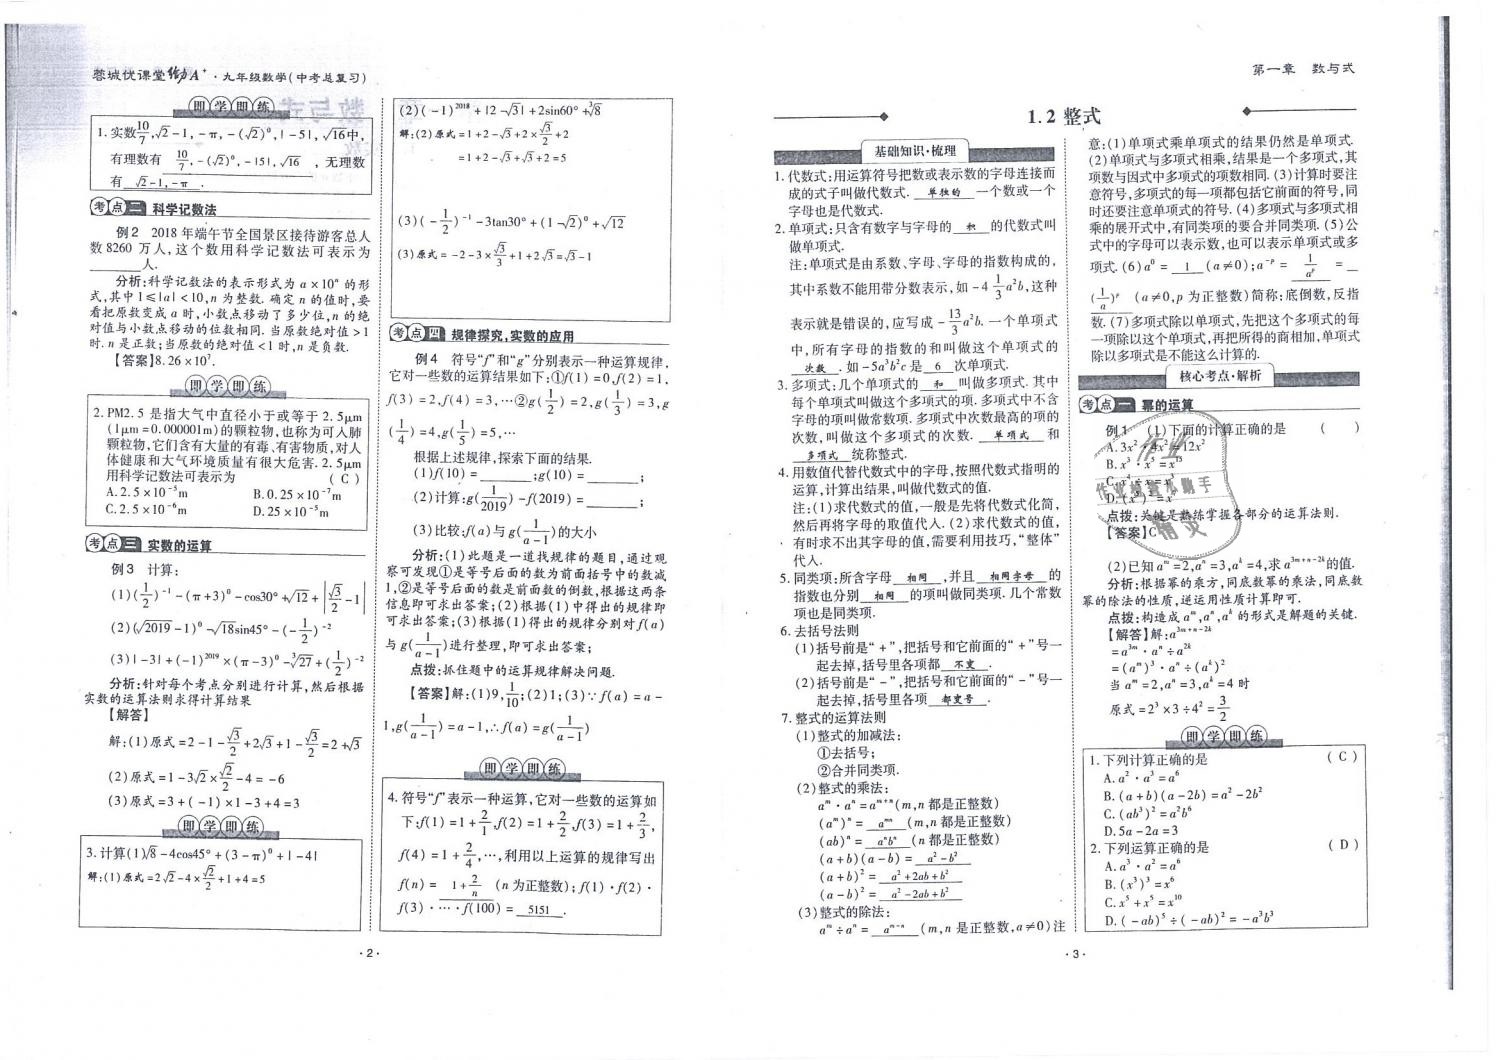 蓉城优课堂给力A⁺·九年级数学(中考总复习)
即学即练
1.实数10/7,√2-1,-π,-(√2)⁰,|-5|,√16中,
有理数有 10/7,-(√2)⁰,-|5|,√16 ,无理数
有 √2-1,-π .
考点二 科学记数法
例2 2018年端午节全国景区接待游客总人
数8260万人,这个数用科学记数法可表示为
______人.
分析:科学记数法的表示形式为a×10ⁿ的形
式,其中1≤|a|<10,n为整数.确定n的值时,要
看把原数变成a时,小数点移动了多少位,n的绝
对值与小数点移动的位数相同.当原数绝对值>1
时.n是正数;当原数的绝对值<1时,n是负数.
【答案】8.26×10⁷.
即学即练
2.PM2.5是指大气中直径小于或等于2.5μm
(1μm=0.000001m)的颗粒物,也称为可入肺
颗粒物,它们含有大量的有毒、有害物质,对人
体健康和大气环境质量有很大危害.2.5μm
用科学记数法可表示为 (C)
A.2.5×10⁻⁵m B.0.25×10⁻⁷m
C.2.5×10⁻⁶m D.25×10⁻⁵m
考点三 实数的运算
例3 计算:
(1)(1/2)⁻¹-(π+3)⁰-cos30°+√12+|√3/2-1|
(2)(√2019-1)⁰-√18sin45°-(-1/2)⁻²
(3)|-3|+(-1)²⁰¹⁹×(π-3)⁰-³√27+(1/2)⁻²
分析:针对每个考点分别进行计算,然后根据
实数的运算法则求得计算结果
【解答】
解:(1)原式=2-1-√3/2+2√3+1-√3/2=2+√3
(2)原式=1-3√2×√2/2-4=-6
(3)原式=3+(-1)×1-3+4=3
即学即练
3.计算(1)√8-4cos45°+(3-π)⁰+|-4|
解:(1)原式=2√2-4×√2/2+1+4=5
(2)(-1)²⁰¹⁸+|2-√3|+2sin60°+³√8
解:(2)原式=1+2-√3+2×√3/2+2
=1+2-√3+√3+2=5
(3)(-1/2)⁻¹-3tan30°+(1-√2)⁰+√12
(3)原式=-2-3×√3/3+1+2√3=√3-1
考点四 规律探究,实数的应用
例4 符号“f”和“g”分别表示一种运算规律,
它对一些数的运算结果如下:①f(1)=0,f(2)=1,
f(3)=2,f(4)=3,…②g(1/2)=2,g(1/3)=3,g
(1/4)=4,g(1/5)=5,…
根据上述规律,探索下面的结果.
(1)f(10)=______;g(10)=______;
(2)计算:g(1/2019)-f(2019)=______;
(3)比较:f(a)与g(1/a-1)的大小
分析:(1)此题是一道找规律的题目,通过观
察可发现①是等号后面的数为前面括号中的数减
1,②是等号后面的数是前面数的倒数,根据这两条
信息即可求出答案;(2)根据(1)中得出的规律即
可求出答案;(3)根据(1)得出的规律分别对f(a)
与g(1/a-1)进行整理,即可求出答案;
点拨:抓住题中的运算规律解决问题.
【答案】解:(1)9,1/10;(2)1;(3)∵f(a)=a-
1,g(1/a-1)=a-1,∴f(a)=g(1/a-1)
即学即练
4.符号“f”表示一种运算,它对一些数的运算如
下:f(1)=1+2/1,f(2)=1+2/2,f(3)=1+2/3,
f(4)=1+2/4,…,利用以上运算的规律写出
f(n)= 1+2/n (n为正整数);f(1)·f(2)·
f(3)·…·f(100)= 5151 .
·2·
第一章 数与式
1.2 整式
基础知识·梳理
1.代数式:用运算符号把数或表示数的字母连接而
成的式子叫做代数式. 单独的 一个数或一个
字母也是代数式.
2.单项式:只含有数字与字母的 积 的代数式叫
做单项式.
注:单项式是由系数、字母、字母的指数构成的,
其中系数不能用带分数表示,如-4 1/3a²b,这种
表示就是错误的,应写成-13/3a²b.一个单项式
中,所有字母的指数的和叫做这个单项式的
次数 .如-5a³b²c是 6 次单项式.
3.多项式:几个单项式的 和 叫做多项式.其中
每个单项式叫做这个多项式的项.多项式中不含
字母的项叫做常数项.多项式中次数最高的项的
次数,叫做这个多项式的次数. 单项式 和
多项式 统称整式.
4.用数值代替代数式中的字母,按照代数式指明的
运算,计算出结果,叫做代数式的值.
注:(1)求代数式的值,一般是先将代数式化简,
然后再将字母的取值代入.(2)求代数式的值,
有时求不出其字母的值,需要利用技巧,“整体”
代入.
5.同类项:所含字母 相同 ,并且 相同字母 的
指数也分别 相同 的项叫做同类项.几个常数
项也是同类项.
6.去括号法则
(1)括号前是“+”,把括号和它前面的“+”号一
起去掉,括号里各项都 不变 .
(2)括号前是“-”,把括号和它前面的“-”号一
起去掉,括号里各项 都变号 .
7.整式的运算法则
(1)整式的加减法:
①去括号;
②合并同类项.
(2)整式的乘法:
aᵐ·aⁿ=aᵐ⁺ⁿ(m,n都是正整数)
(aᵐ)ⁿ= aᵐⁿ (m,n都是正整数)
(ab)ⁿ= aⁿbⁿ (n都是正整数)
(a+b)(a-b)= a²-b²
(a+b)²= a²+2ab+b²
(a-b)²= a²-2ab+b²
(3)整式的除法:
aᵐ÷aⁿ= aᵐ⁻ⁿ (m,n是正整数,a≠0)注
意:(1)单项式乘单项式的结果仍然是单项式.
(2)单项式与多项式相乘,结果是一个多项式,其
项数与因式中多项式的项数相同.(3)计算时要注
意符号,多项式的每一项都包括它前面的符号,同
时还要注意单项式的符号.(4)多项式与多项式相
乘的展开式中,有同类项的要合并同类项.(5)公
式中的字母可以表示数,也可以表示单项式或多
项式.(6)a⁰= 1 (a≠0);a⁻ᵖ= 1/aᵖ =
(1/a)ᵖ (a≠0,p为正整数)简称:底倒数,反指
数.(7)多项式除以单项式,先把这个多项式的每
一项除以这个单项式,再把所得的商相加,单项式
除以多项式是不能这么计算的.
核心考点·解析
考点一 幂的运算
例1 (1)下面的计算正确的是 ( )
A.3x²·4x²=12x²
B.x³·x⁵=x¹⁵
C.x⁴÷x=x³
D.(x⁵)²=x⁷
点拨:关键是熟练掌握各部分的运算法则.
【答案】C
(2)已知aᵐ=2,aⁿ=3,aᵏ=4,求a³ᵐ⁺ⁿ⁻²ᵏ的值.
分析:根据幂的乘方,同底数幂的乘法,同底数
幂的除法的性质,逆运用性质计算即可.
点拨:构造成aᵐ,aⁿ,aᵏ的形式是解题的关键.
【解答】解:a³ᵐ⁺ⁿ⁻²ᵏ
=a³ᵐ·aⁿ÷a²ᵏ
=(aᵐ)³·aⁿ÷(aᵏ)²
当aᵐ=2,aⁿ=3,aᵏ=4时
原式=2³×3÷4²=3/2
即学即练
1.下列计算正确的是 (C)
A.a²·a³=a⁶
B.(a+b)(a-2b)=a²-2b²
C.(ab³)²=a²b⁶
D.5a-2a=3
2.下列运算正确的是 (D)
A.a³·a²=a⁶
B.(x³)³=x⁶
C.x⁵+x⁵=x¹⁰
D.(-ab)⁵÷(-ab)²=-a³b³
·3·